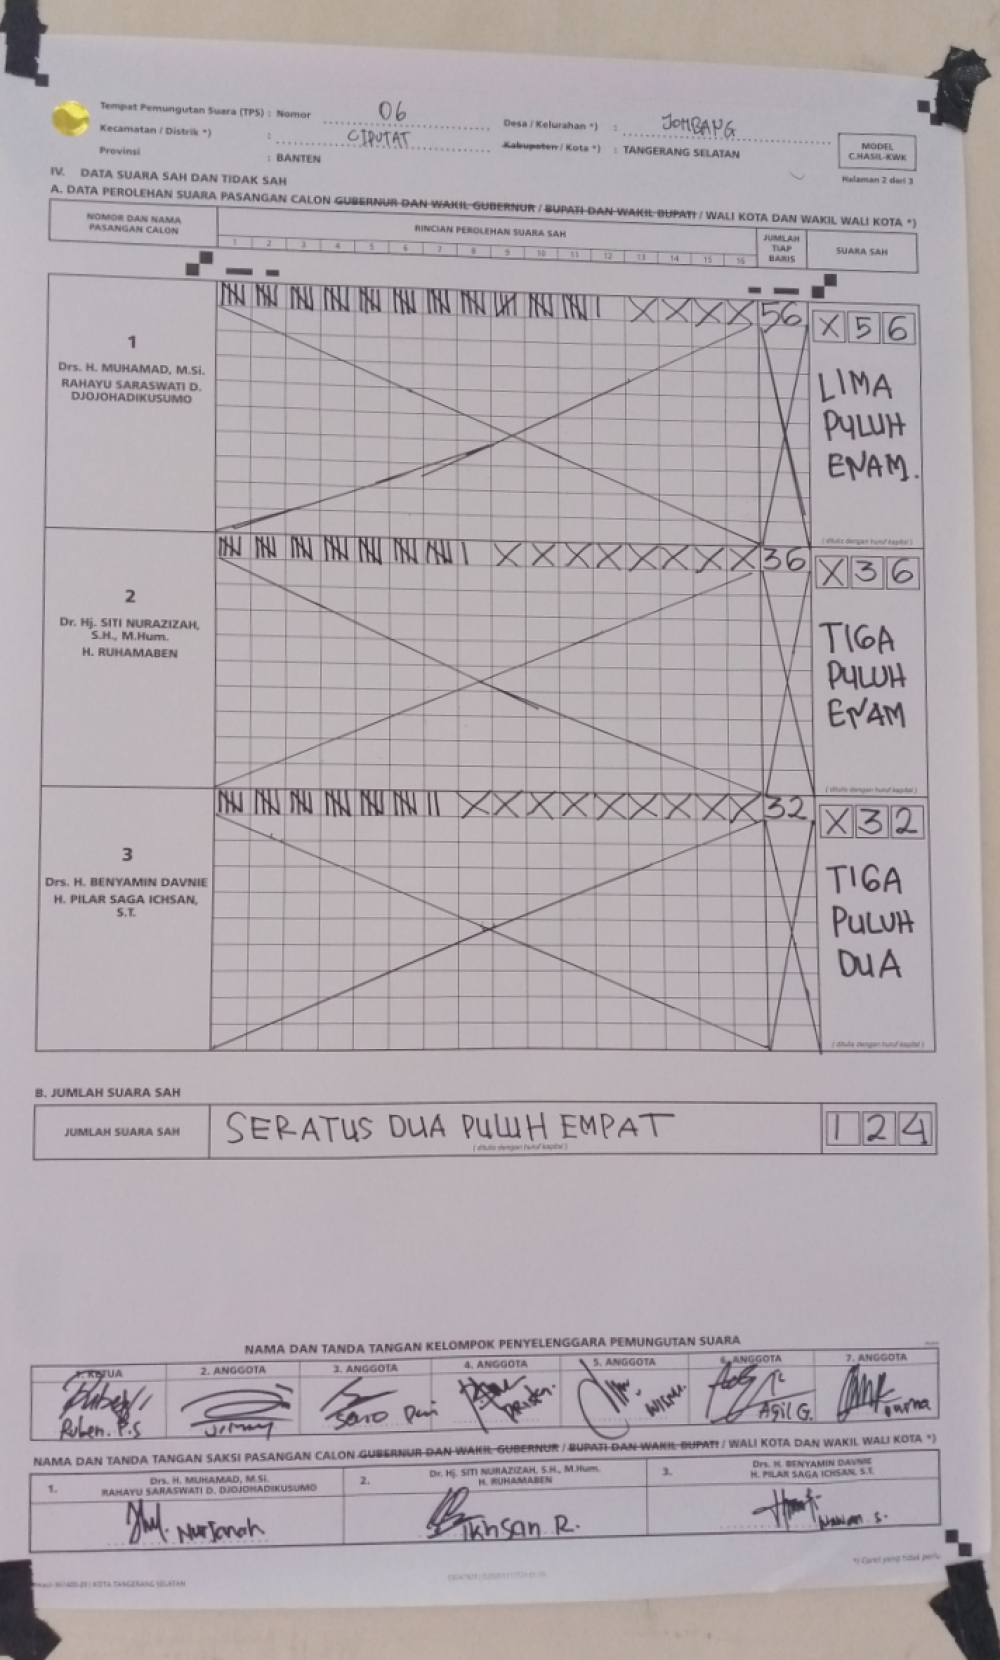 Tempat Pemungutan Suara (TPS) : Nomor 06 Desa / Kelurahan *) : JOMBANG
Kecamatan / Distrik *) : CIPUTAT Kabupaten / Kota *) : TANGERANG SELATAN
Provinsi : BANTEN
MODEL
C.HASIL-KWK
Halaman 2 dari 3
IV. DATA SUARA SAH DAN TIDAK SAH
A. DATA PEROLEHAN SUARA PASANGAN CALON GUBERNUR DAN WAKIL GUBERNUR / BUPATI DAN WAKIL BUPATI / WALI KOTA DAN WAKIL WALI KOTA *)
NOMOR DAN NAMA
PASANGAN CALON
RINCIAN PEROLEHAN SUARA SAH
1 2 3 4 5 6 7 8 9 10 11 12 13 14 15 16
JUMLAH
TIAP
BARIS
SUARA SAH
1
Drs. H. MUHAMAD, M.Si.
RAHAYU SARASWATI D.
DJOJOHADIKUSUMO
X X X X 56
X 5 6
LIMA
PULUH
ENAM.
( ditulis dengan huruf kapital )
2
Dr. Hj. SITI NURAZIZAH,
S.H., M.Hum.
H. RUHAMABEN
X X X X X X X X 36
X 3 6
TIGA
PULUH
ENAM
( ditulis dengan huruf kapital )
3
Drs. H. BENYAMIN DAVNIE
H. PILAR SAGA ICHSAN,
S.T.
X X X X X X X X X 32
X 3 2
TIGA
PULUH
DUA
( ditulis dengan huruf kapital )
B. JUMLAH SUARA SAH
JUMLAH SUARA SAH
SERATUS DUA PULUH EMPAT
( ditulis dengan huruf kapital )
1 2 4
NAMA DAN TANDA TANGAN KELOMPOK PENYELENGGARA PEMUNGUTAN SUARA
1. KETUA 2. ANGGOTA 3. ANGGOTA 4. ANGGOTA 5. ANGGOTA 6. ANGGOTA 7. ANGGOTA
Ruben. P.S Agil G.
NAMA DAN TANDA TANGAN SAKSI PASANGAN CALON GUBERNUR DAN WAKIL GUBERNUR / BUPATI DAN WAKIL BUPATI / WALI KOTA DAN WAKIL WALI KOTA *)
1. Drs. H. MUHAMAD, M.Si.
RAHAYU SARASWATI D. DJOJOHADIKUSUMO
2. Dr. Hj. SITI NURAZIZAH, S.H., M.Hum.
H. RUHAMABEN
3. Drs. H. BENYAMIN DAVNIE
H. PILAR SAGA ICHSAN, S.T.
Nurjanah
Ikhsan R.
*) Coret yang tidak perlu
KOTA TANGERANG SELATAN